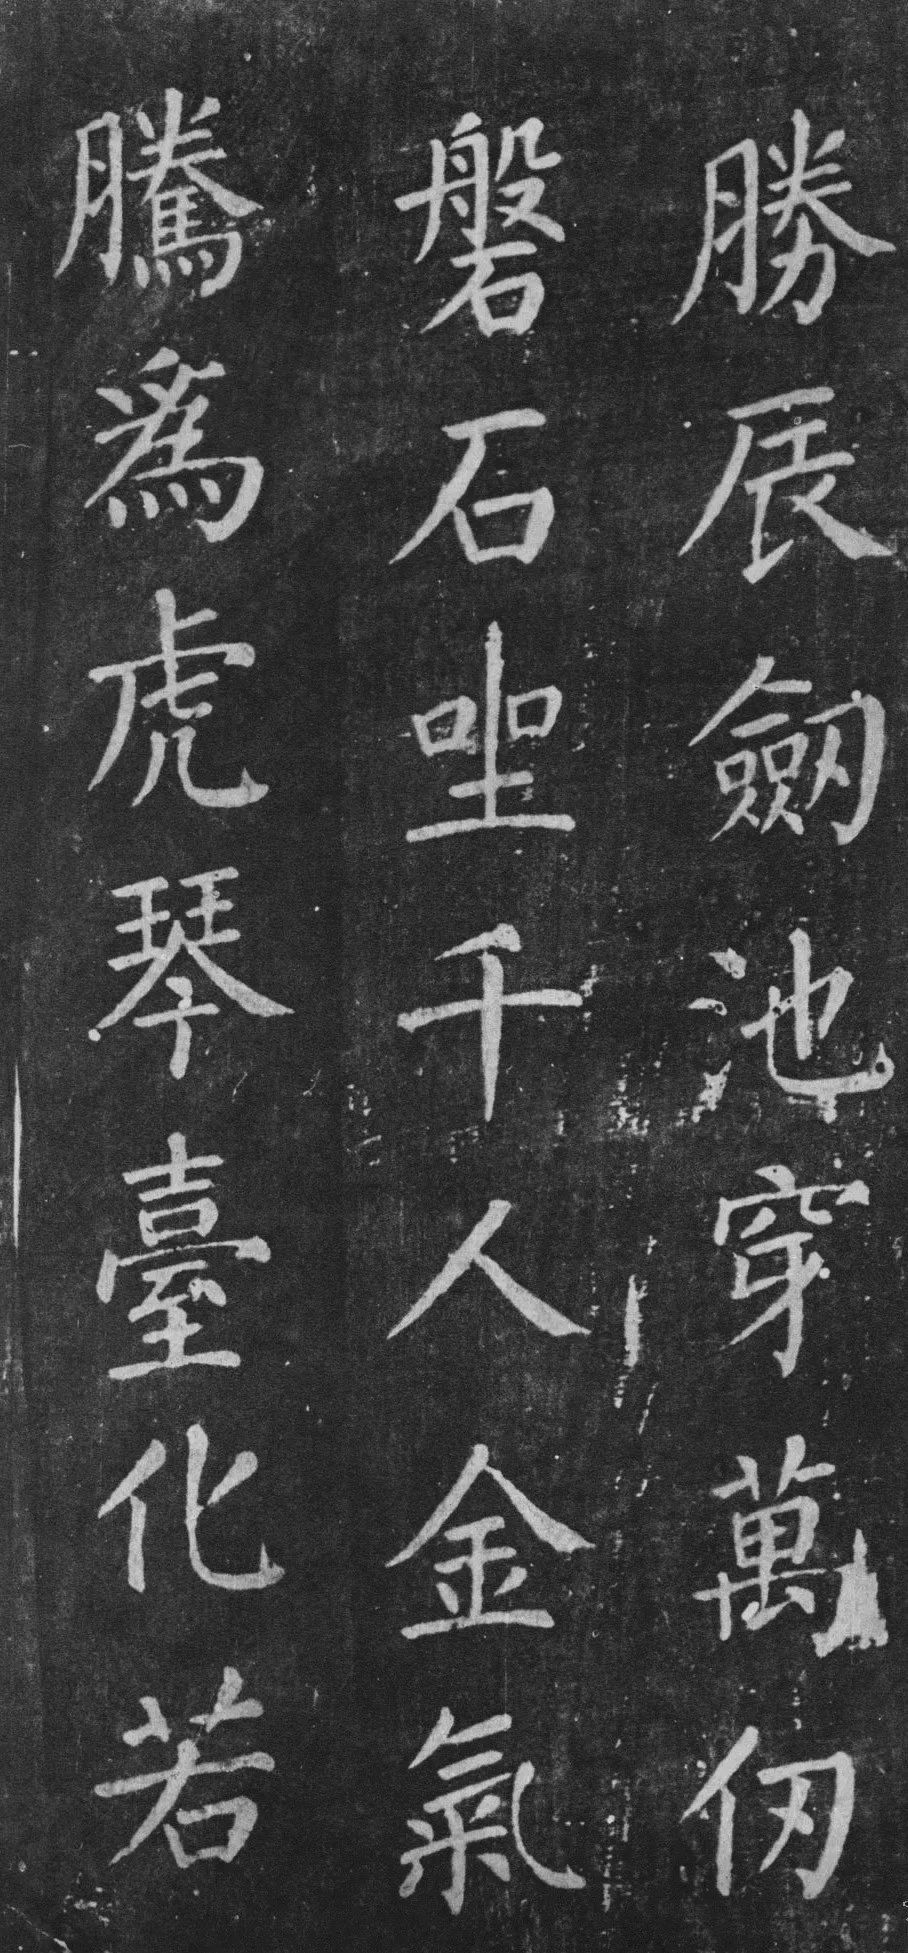 勝辰劒池穿萬仞
磐石坐千人金氣
騰爲虎琴臺化若